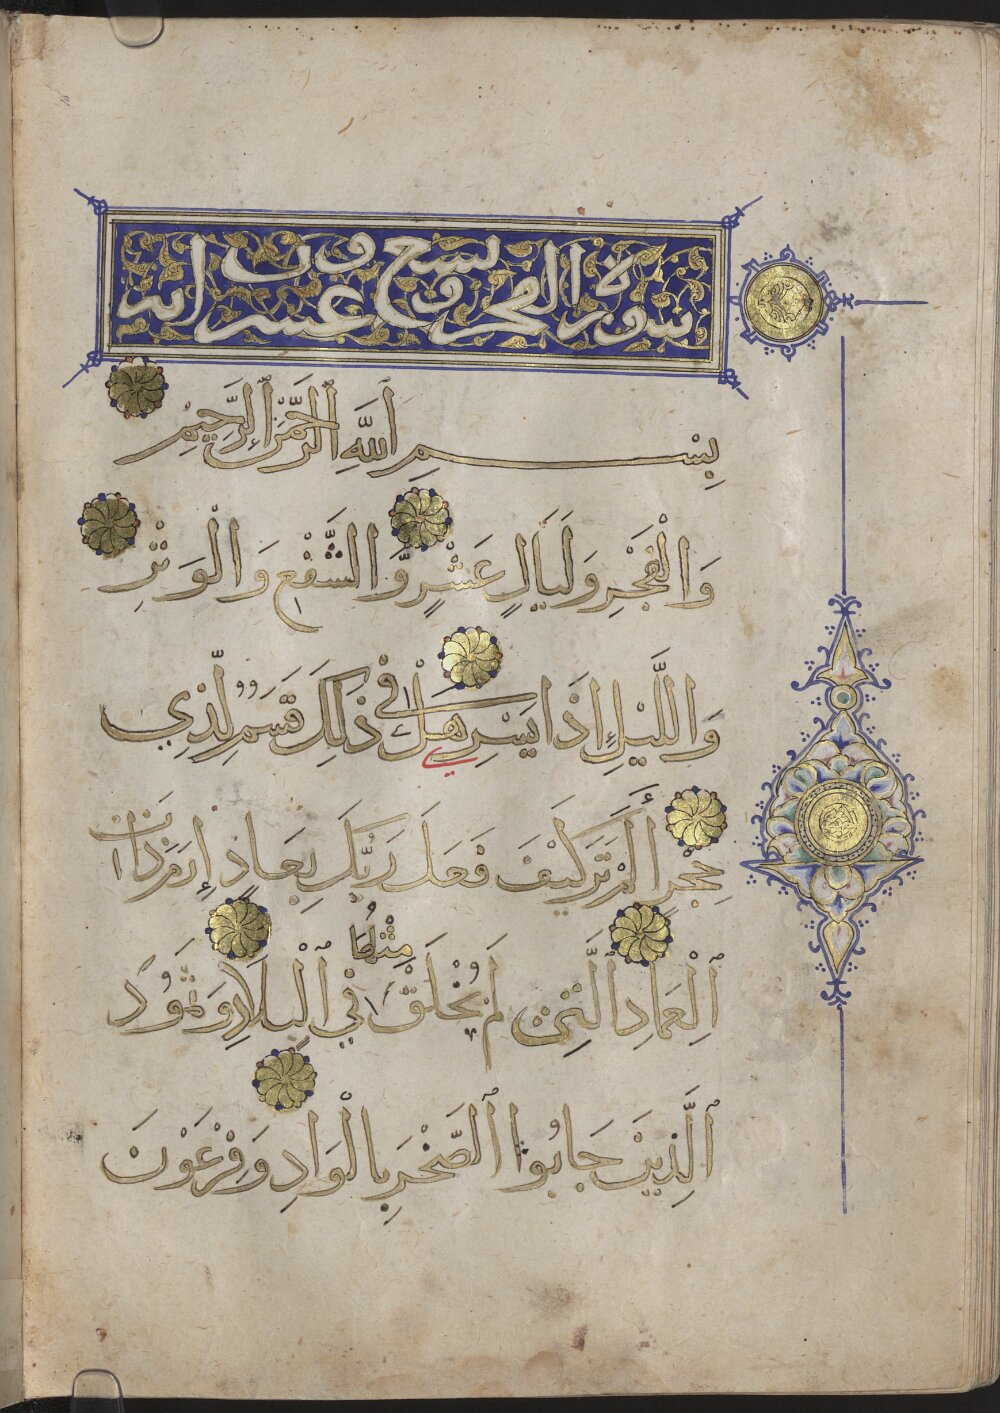 سورة الفجر تسع وعشرون اية
بِسْمِ ٱللَّهِ ٱلرَّحْمَنِ ٱلرَّحِيمِ
وَالْفَجْرِ وَلَيَالٍ عَشْرٍ وَّالشَّفْعِ وَالْوَتْرِ
وَاللَّيْلِ إِذَا يَسْرِ هَلْ فِي ذَلِكَ قَسَمٌ لِّذِي
حِجْرٍ أَلَمْ تَرَ كَيْفَ فَعَلَ رَبُّكَ بِعَادٍ إِرَمَ ذَاتِ
ٱلْعِمَادِ ٱلَّتِي لَمْ يُخْلَقْ مِثْلُهَا فِي ٱلْبِلَادِ وَثَمُودَ
ٱلَّذِينَ جَابُوا ٱلصَّخْرَ بِالْوَادِ وَفِرْعَوْنَ